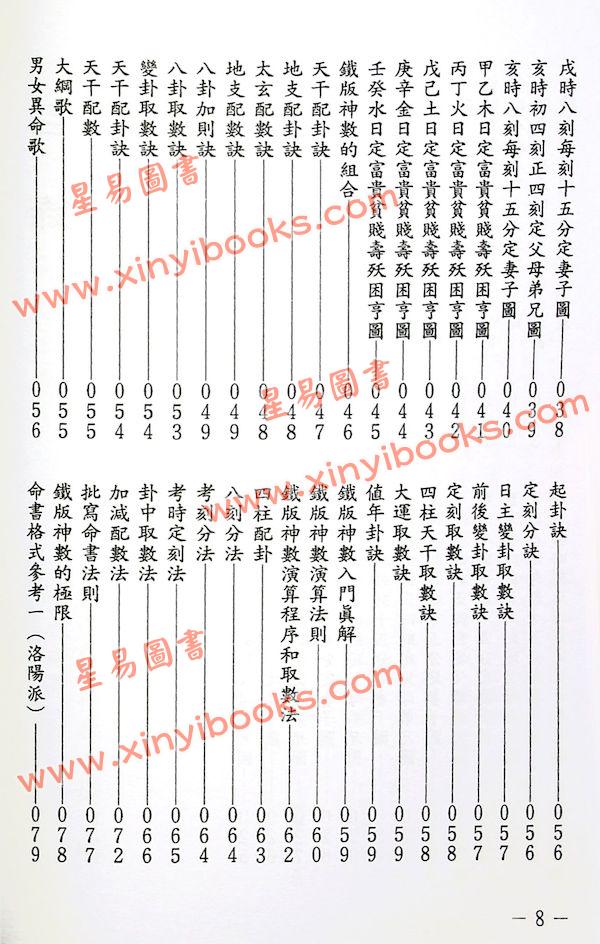 戌時八刻每刻十五分定妻子圖——038
亥時初四刻正四刻定父母弟兄圖——039
亥時八刻每刻十五分定妻子圖——040
甲乙木日定富貴貧賤壽殀困亨圖——041
丙丁火日定富貴貧賤壽殀困亨圖——042
戊己土日定富貴貧賤壽殀困亨圖——043
庚辛金日定富貴貧賤壽殀困亨圖——044
壬癸水日定富貴貧賤壽殀困亨圖——045
鐵版神數的組合——046
天干配卦訣——047
地支配卦訣——048
太玄配數訣——048
地支配數訣——049
八卦加則訣——049
八卦取數訣——053
變卦取數訣——054
天干配卦訣——054
天干配數——055
大綱歌——055
男女異命歌——056
起卦訣——056
定刻分訣——056
日主變卦取數訣——057
前後變卦取數訣——057
定刻取數訣——058
四柱天干取數訣——058
大運取數訣——059
值年卦訣——059
鐵版神數入門眞解——059
鐵版神數演算法則——060
鐵版神數演算程序和取數法——062
四柱配卦——063
八刻分法——064
考刻分法——064
考時定刻法——065
卦中取數法——066
加減配數法——072
批寫命書法則——077
鐵版神數的極限——078
命書格式參考一（洛陽派）——079
— 8 —
星易圖書
www.xinyibooks.com
星易圖書
www.xinyibooks.com
星易圖書
www.xinyibooks.com